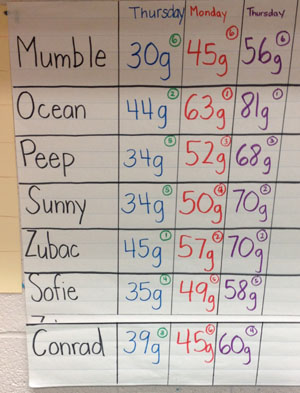 Thursday Monday Thursday
Mumble 30g 6 45g 6 56g 6
Ocean 44g 2 63g 1 81g 1
Peep 34g 5 52g 3 68g 3
Sunny 34g 5 50g 4 70g 2
Zubac 45g 1 57g 2 70g 2
Sofie 35g 4 49g 5 58g 5
Conrad 39g 3 45g 6 60g 4